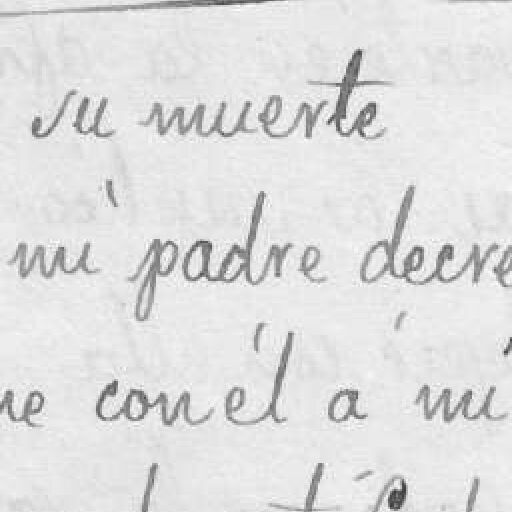 su muerte
mi padre decre
ue con él á mi